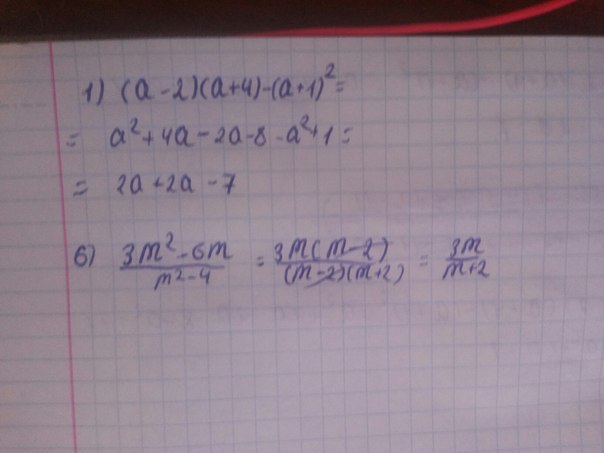 1) (a-2)(a+4)-(a+1)²=
= a²+4a-2a-8-a²+1=
= 2a+2a-7
6) (3m²-6m)/(m²-4) = (3m(m-2))/((m-2)(m+2)) = 3m/(m+2)